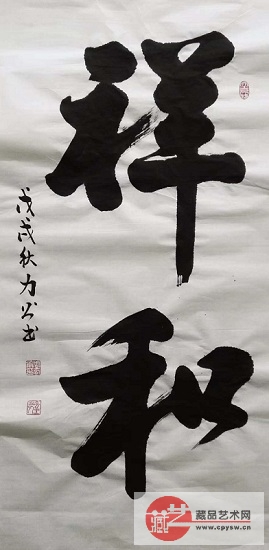 祥和
戊戌秋力公书
藏艺
藏品艺术网
www.cpysw.cn